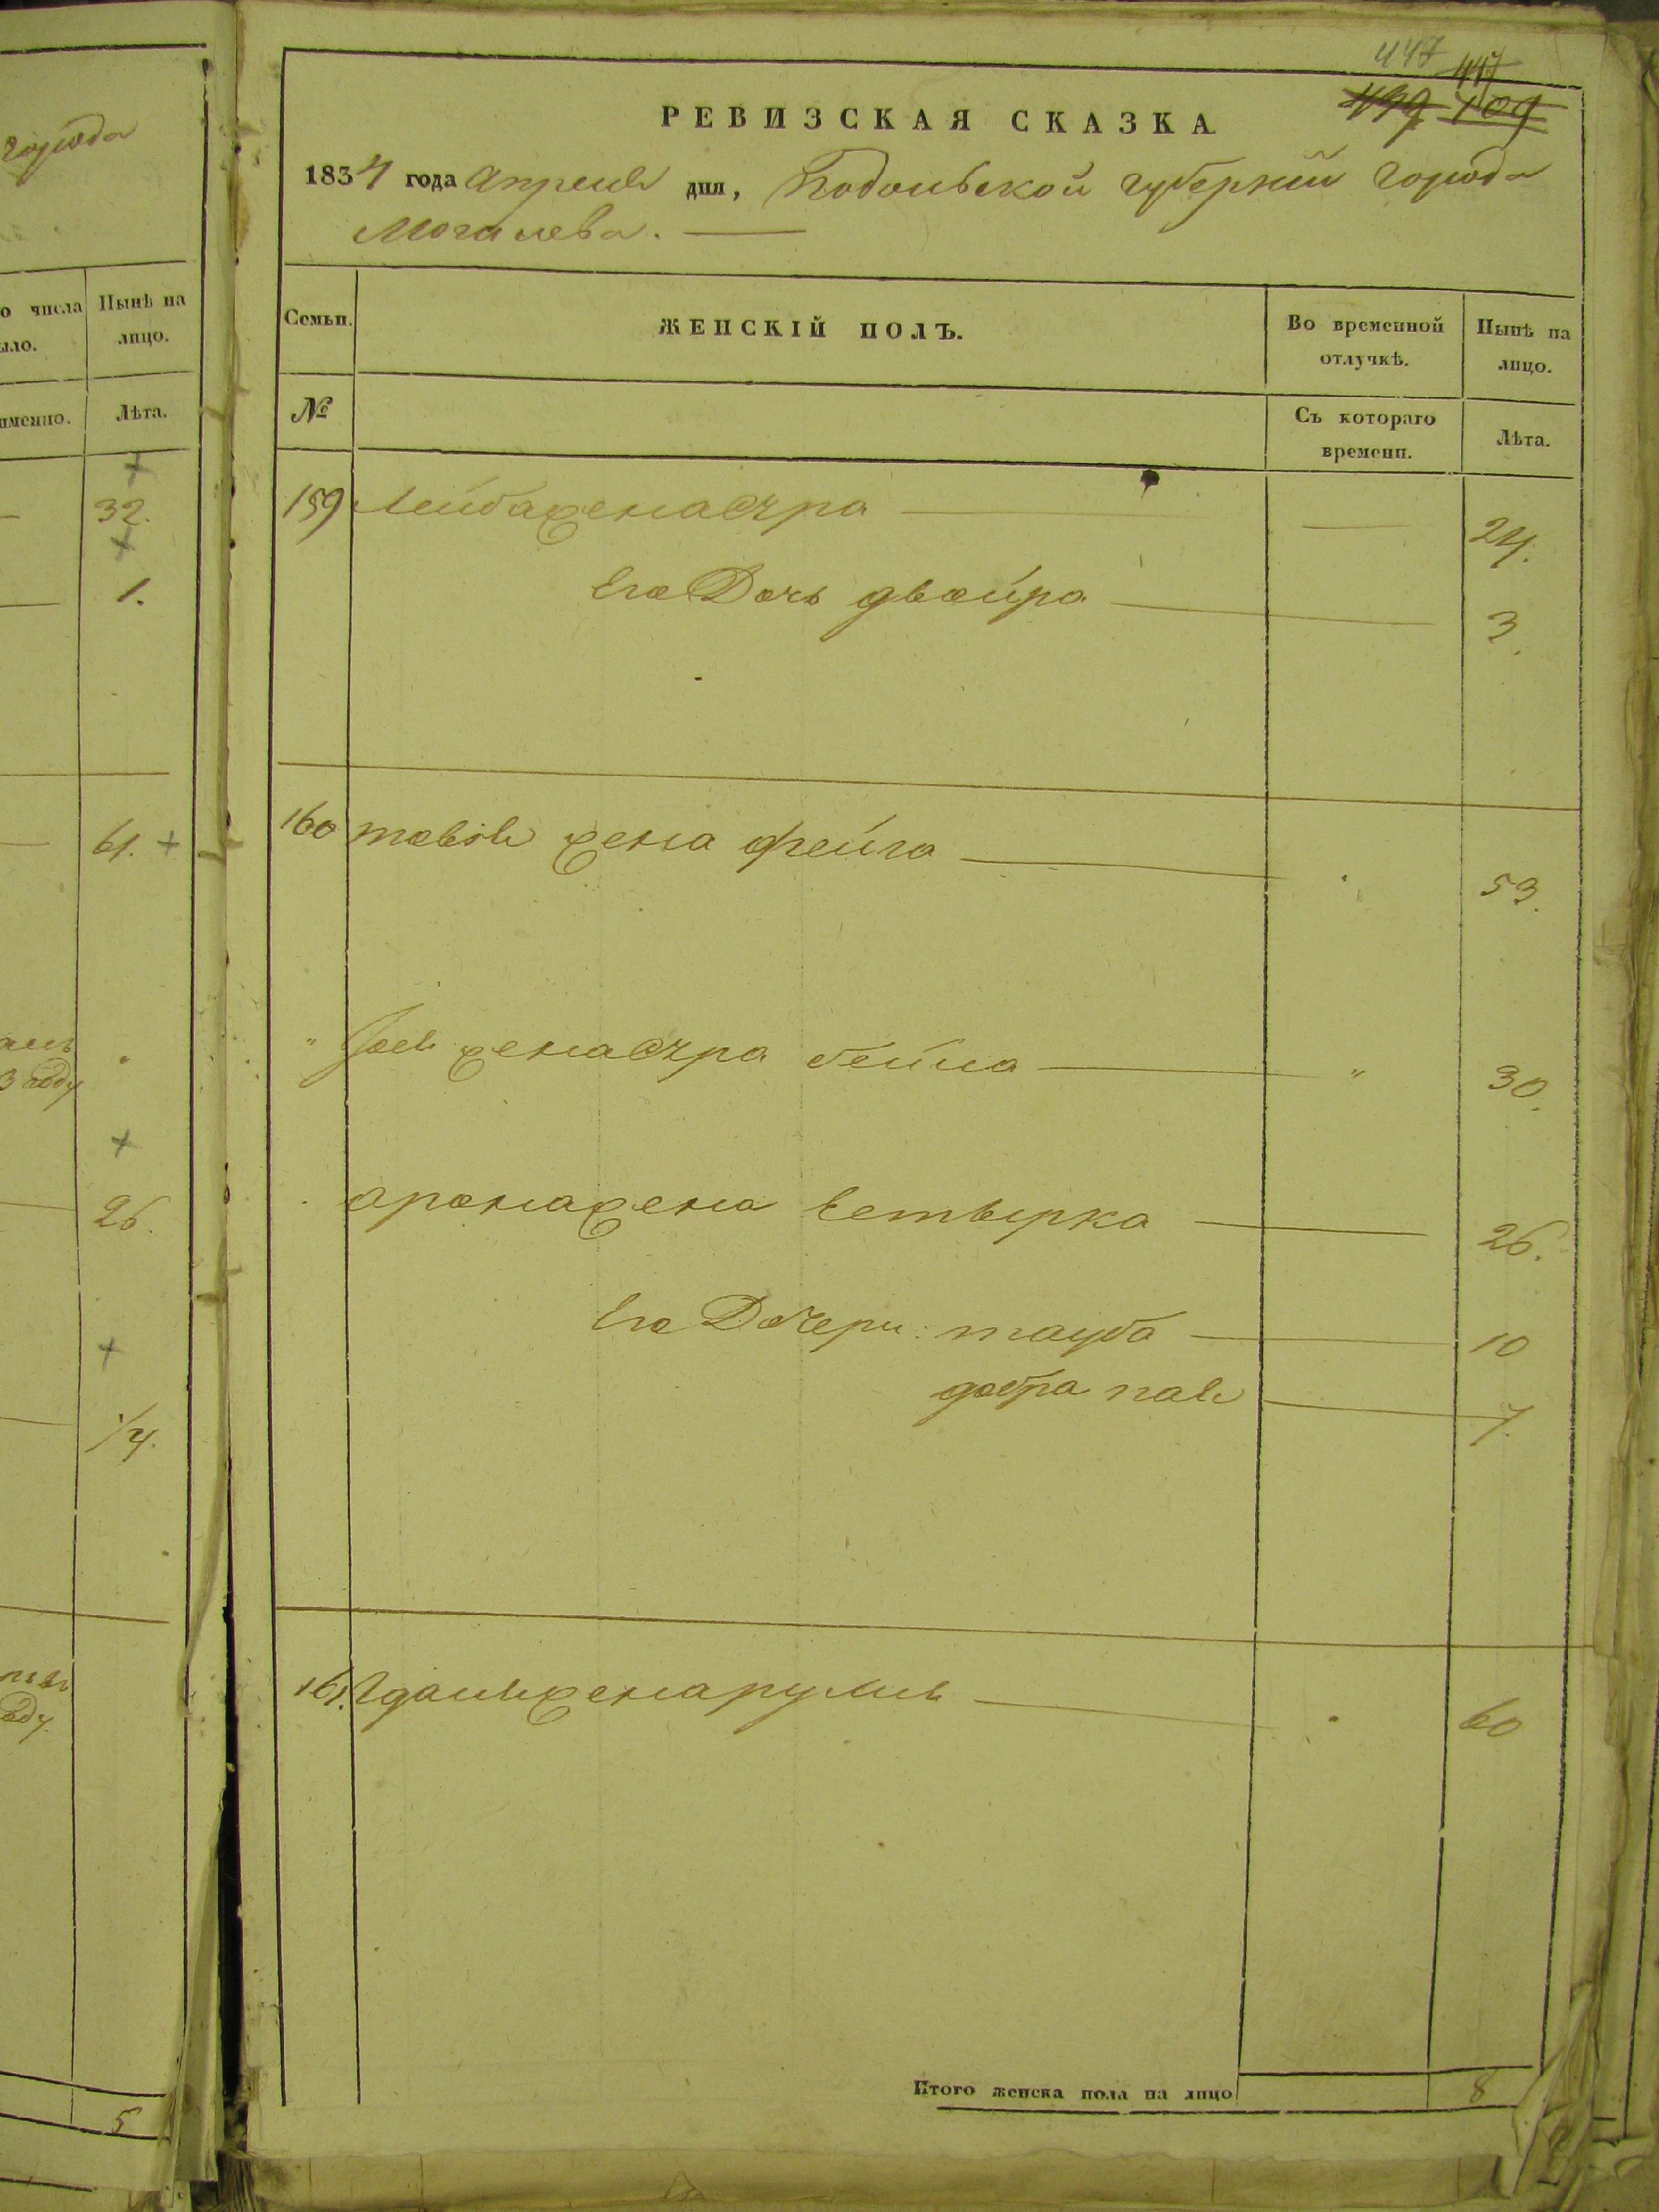 города
447 447
499 109
РЕВИЗСКАЯ СКАЗКА
1834 года Апреля дня, Подольской губернии города
Могилева.
о числа Нынѣ на
ыло. лицо.
именно. Лѣта.
Семьи. ЖЕНСКІЙ ПОЛЪ. Во временной отлучкѣ. Нынѣ на лицо.
№ Съ котораго времени. Лѣта.
32.
1.
159 Лейба жена Сура 24.
Его Дочь двойра 3.
61.
160 товія жена фейга 53.
3 году
" жена Сура бейла " 30.
26.
арона жена 26.
Его Дочери: тауба 10
добра 7.
1/4.
161. жена 60
оду.
Итого женска пола на лицо 8
5